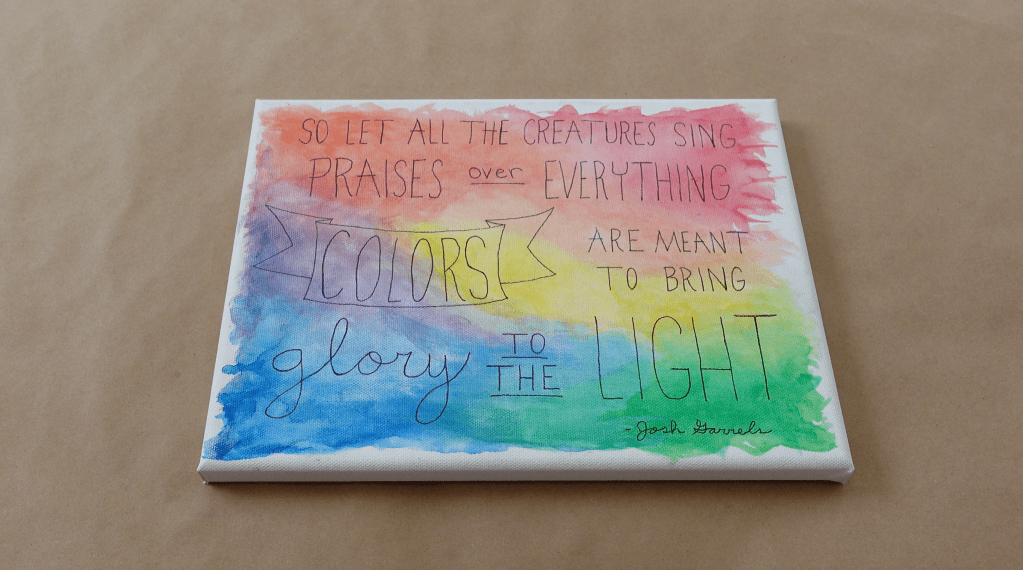 SO LET ALL THE CREATURES SING
PRAISES over EVERYTHING
COLORS ARE MEANT
TO BRING
glory TO THE LIGHT
- Josh Garrels